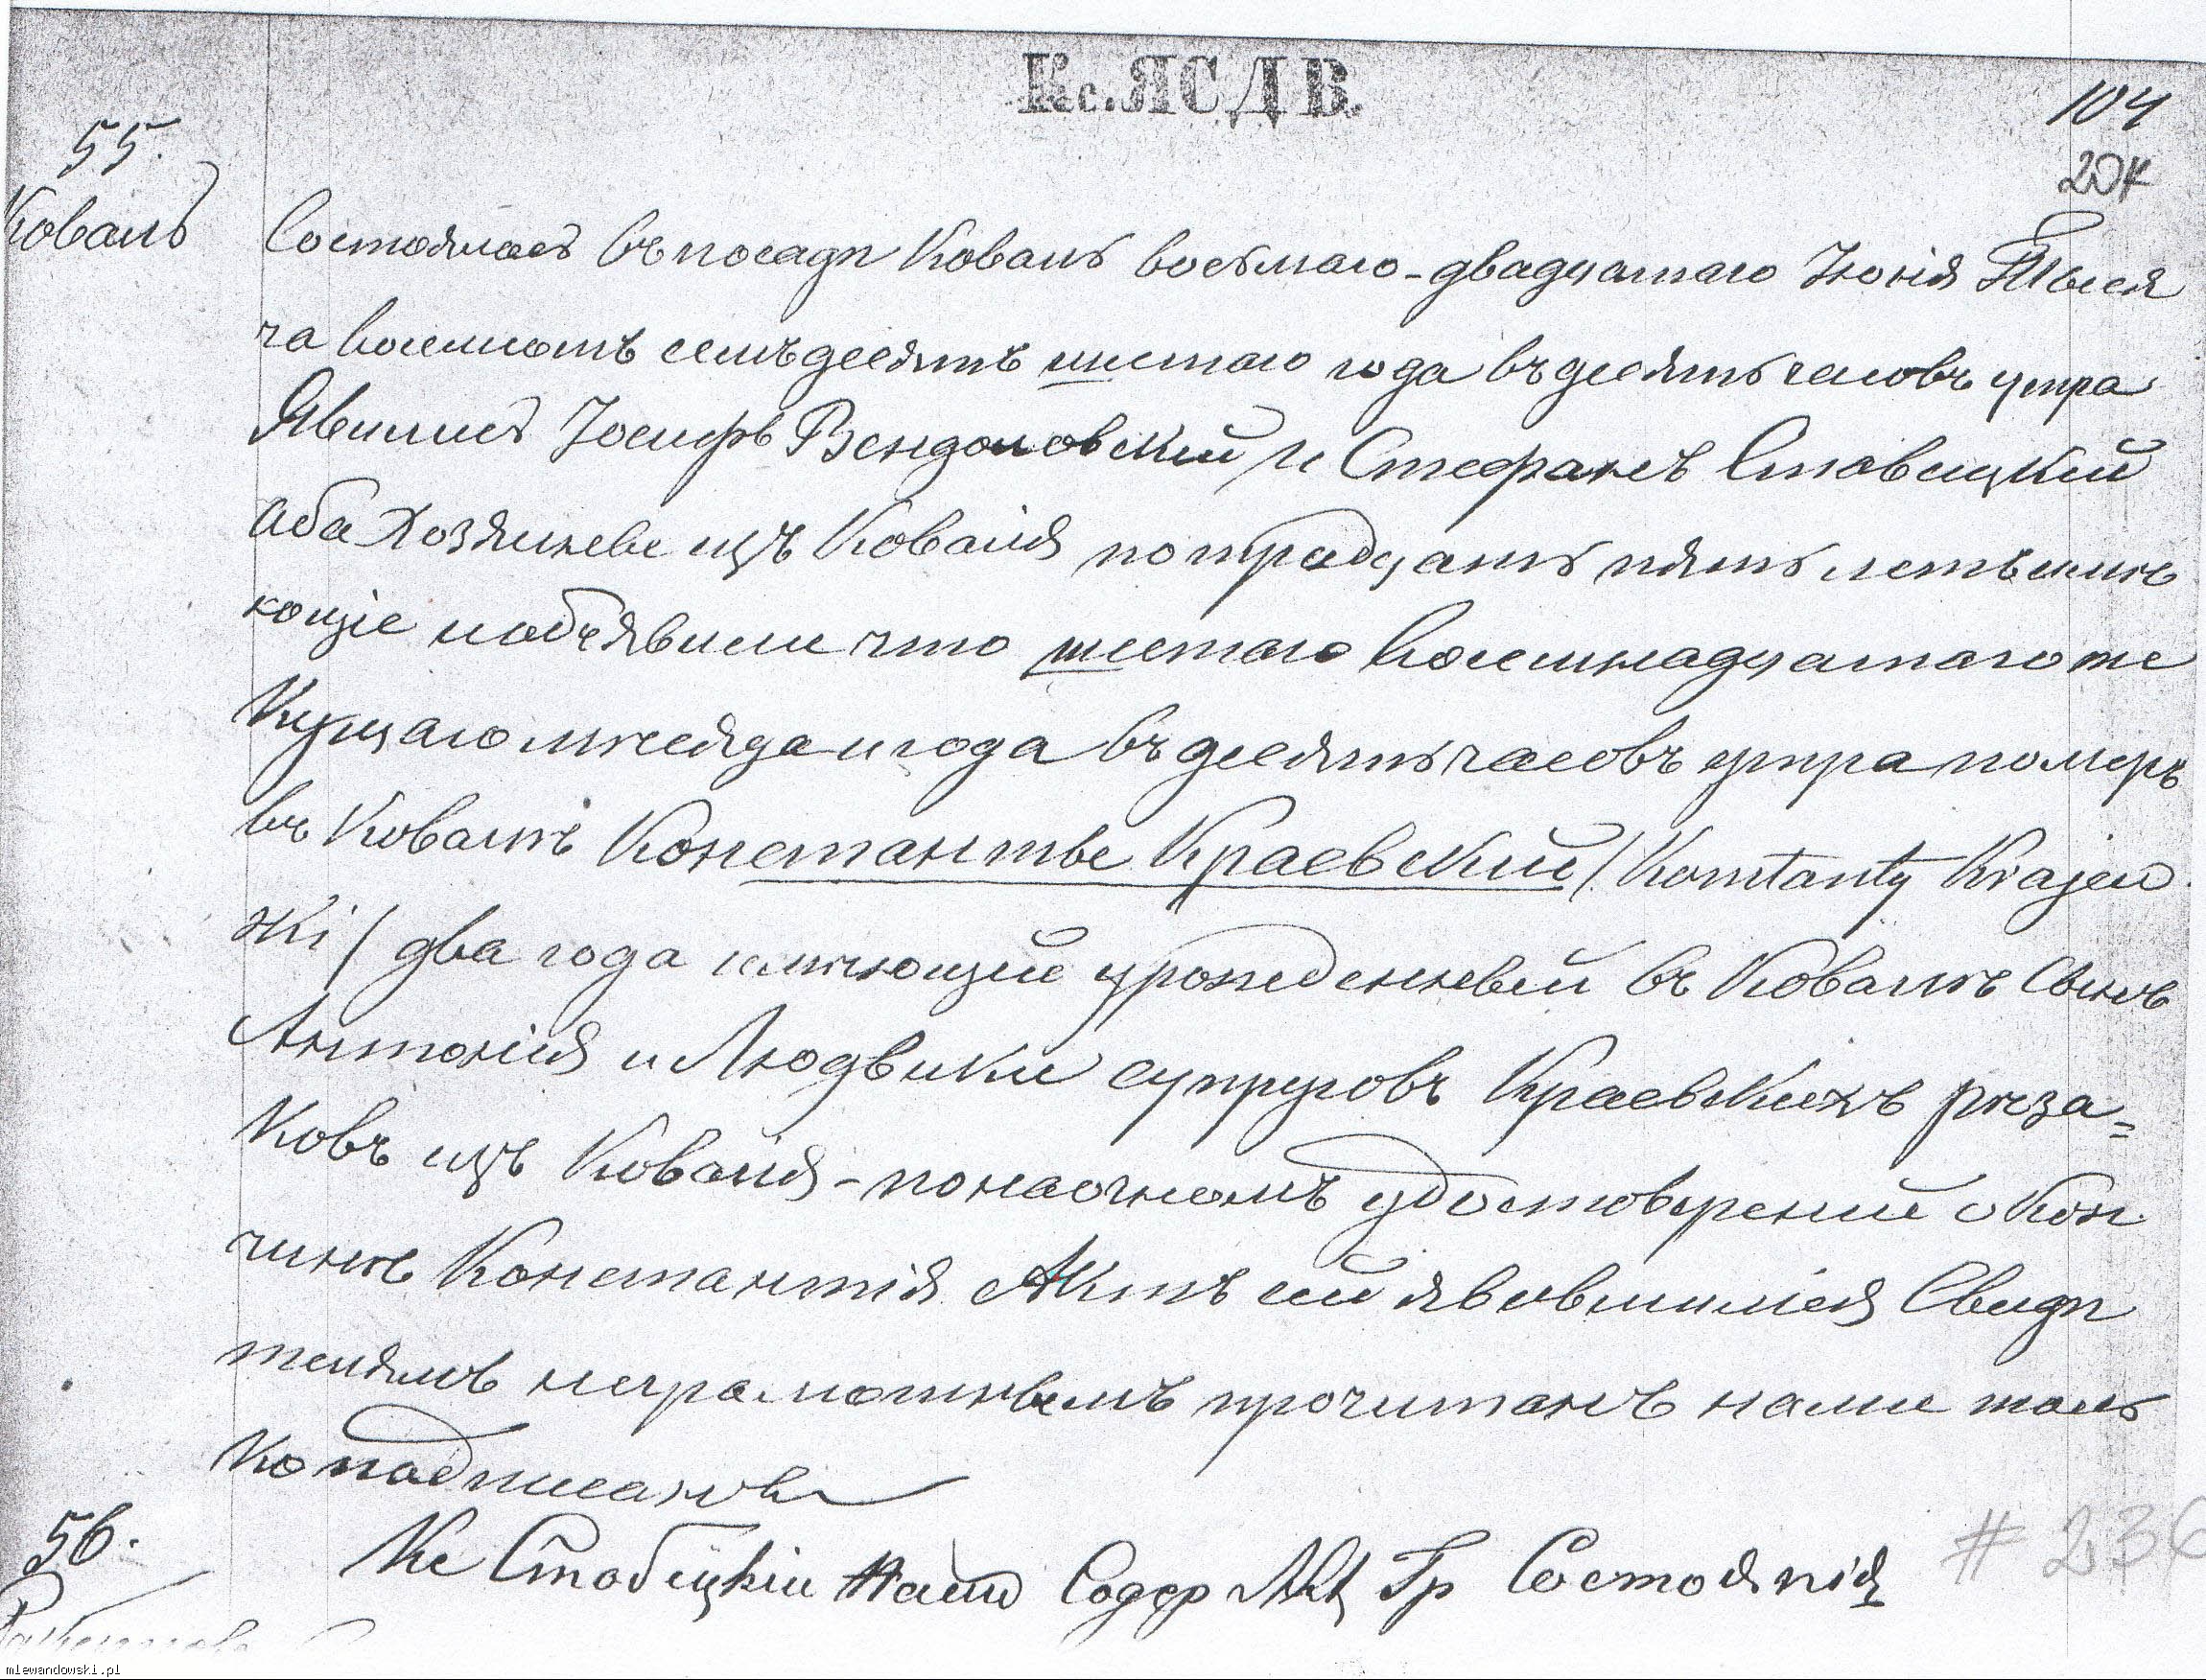 Кс. ЯСДВ.
104
204
55.
Коваль
Состоялось въ посадѣ Коваль восьмаго-двадцатаго Іюнія Тыся
ча восемсотъ семъдесятъ шестаго года въ десять часовъ утра
Явились Іосифъ Вендоловскій и Стефанъ Ставицкій
оба Хозяиневе изъ Коваля по традцать пять летъ имѣ
ющіе и объявили что шестаго Восемнадцатаго те
Кущаго мѣсяца и года въ десять часовъ утра померъ
въ Ковалѣ Константые Краевскій / Konstanty Krajew
ski / два года имѣющій урожденный въ Ковалѣ Сынъ
Антонія и Людвики супруговъ Краевскихъ рѣза=
Ковъ изъ Коваля - по наочномъ удостоверений о Кон
чинѣ Константія Актъ сей явовшимся Свидѣ
телямъ неграмотнымъ прочитанъ нами толь
ко подписанъ
Кс Ставицкій Наст Содер Акц Гр Состоянія
# 236
56.
mlewandowski.pl